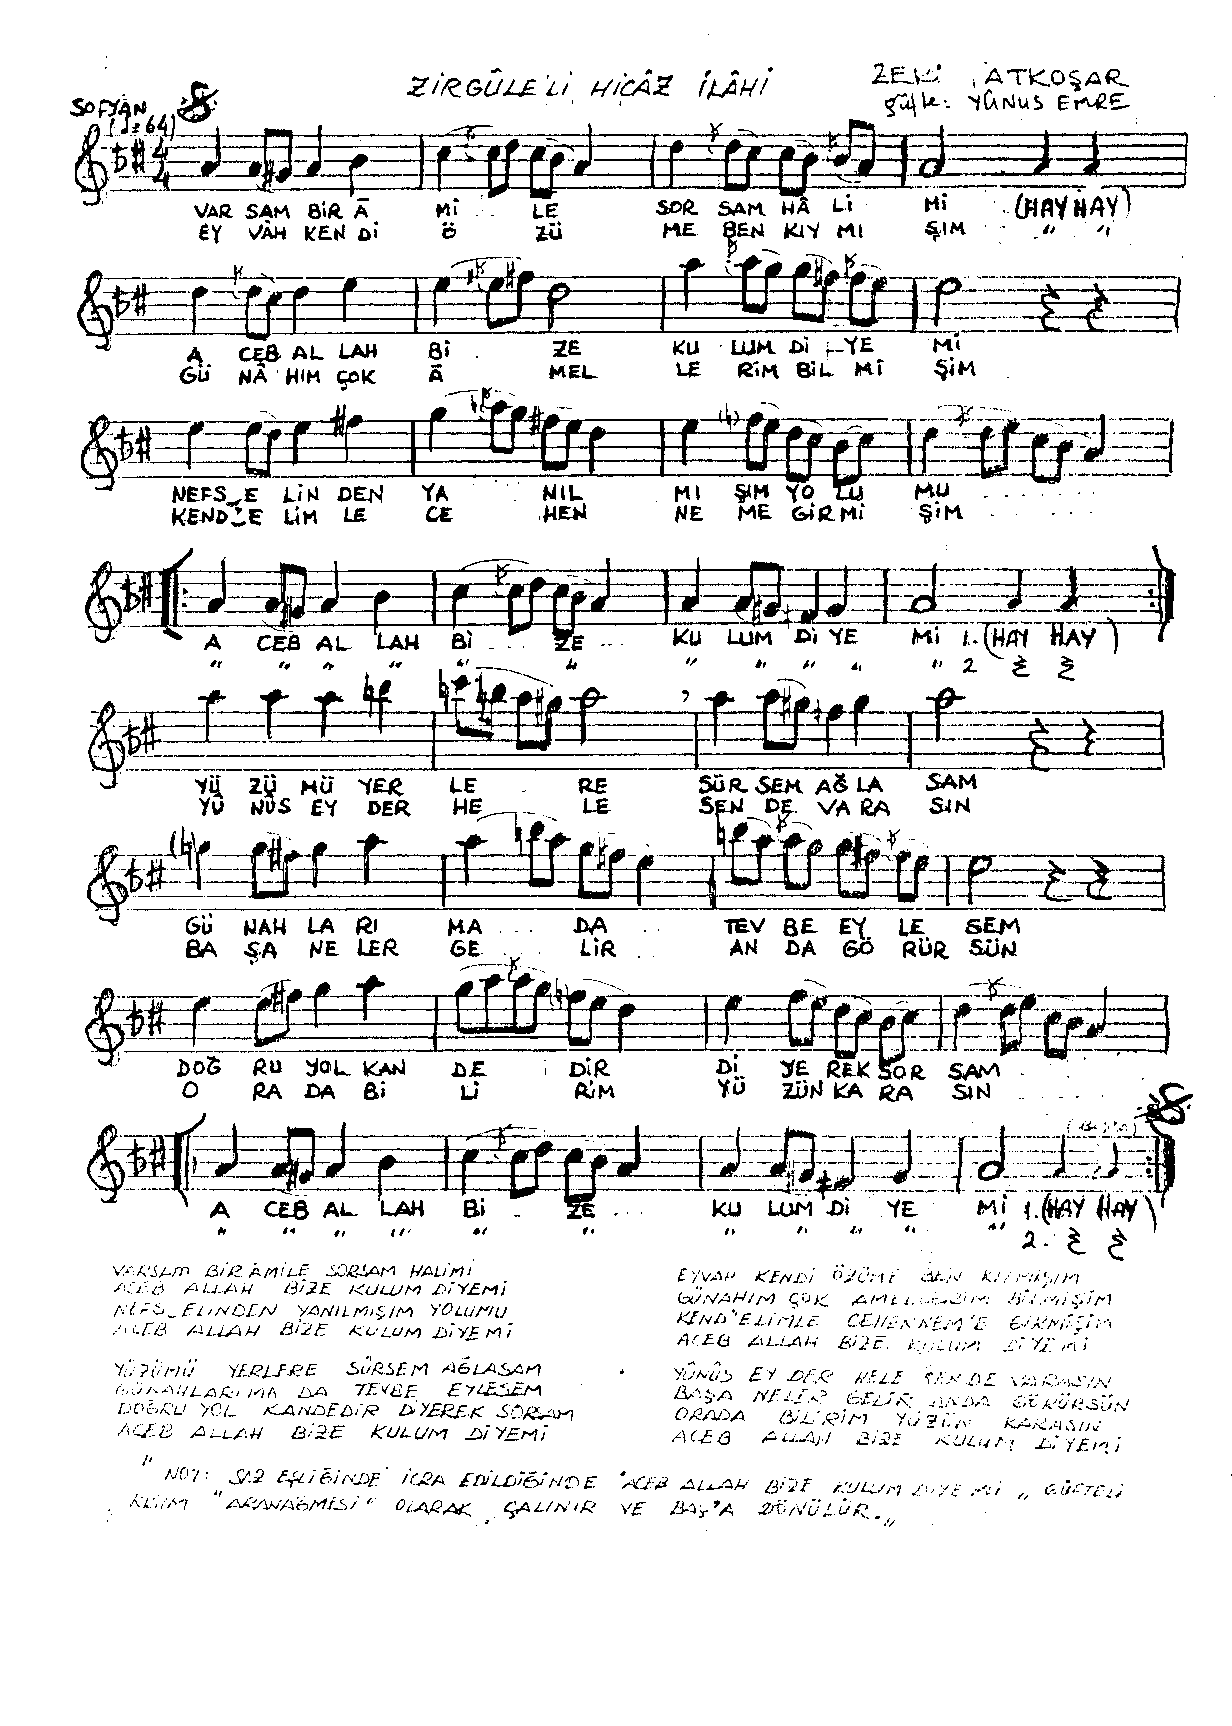 ZİRGÛLE'Lİ HİCÂZ İLÂHİ
ZEKİ ATKOŞAR
güfte: YÛNUS EMRE
SOFYÂN
(♩=64)
4/4
VAR SAM BİR Â Mİ . . LE SOR SAM HÂ Lİ Mİ . . (HAY HAY)
EY VÂH KEN Dİ Ö ZÜ ME BEN KIY MI ŞIM . . " "
A CEB AL LAH Bİ . ZE KU LUM Dİ YE Mİ
GÜ NÂ HIM ÇOK Â MEL LE RİM BİL Mİ ŞİM
NEFS_E LİN DEN YA . NIL MI ŞIM YO LU MU . . . . . .
KEND'_E LİM LE CE . HEN NE ME GİR Mİ ŞİM . . . . . .
A CEB AL LAH Bİ . . . ZE . . . KU LUM Dİ YE Mİ 1. (HAY HAY)
" " " " " " " " " " " 2
YÜ ZÜ MÜ YER LE . RE SÜR SEM AĞ LA SAM
YÛ NÛS EY DER HE . LE SEN DE VA RA SIN
GÜ NAH LA RI MA . . . DA . . TEV BE EY LE SEM
BA ŞA NE LER GE . . LİR . . AN DA GÖ RÜR SÜN
DOĞ RU YOL KAN DE DİR Dİ YE REK SOR SAM . . . .
O RA DA Bİ Lİ RİM YÜ ZÜN KA RA SIN . . . . .
A CEB AL LAH Bİ . . ZE . . . KU LUM Dİ YE Mİ 1. (HAY HAY)
" " " " " " " " " " " 2.
VARSAM BİR ÂMİLE SORSAM HALİMİ
ACEB ALLAH BİZE KULUM DİYEMİ
NEFS_ELİNDEN YANILMIŞIM YOLUMU
ACEB ALLAH BİZE KULUM DİYEMİ
EYVAH KENDİ ÖZÜME BEN KIYMIŞIM
GÜNAHIM ÇOK AMELLERİM BİLMİŞİM
KEND'ELİMLE CEHENNEM'E GİRMİŞİM
ACEB ALLAH BİZE KULUM DİYEMİ
YÜZÜMÜ YERLERE SÜRSEM AĞLASAM
GÜNAHLARIMA DA TEVBE EYLESEM
DOĞRU YOL KANDEDİR DİYEREK SORSAM
ACEB ALLAH BİZE KULUM DİYEMİ
YÛNÛS EY DER HELE SEN DE VARASIN
BAŞA NELER GELİR ANDA GÖRÜRSÜN
ORADA BİLİRİM YÜZÜN KARASIN
ACEB ALLAH BİZE KULUM DİYEMİ
" NOT: SAZ EŞLİĞİNDE İCRA EDİLDİĞİNDE "ACEB ALLAH BİZE KULUM DİYE Mİ" GÜFTELİ
KISIM "ARANAĞMESİ" OLARAK ÇALINIR VE BAŞ'A DÖNÜLÜR."